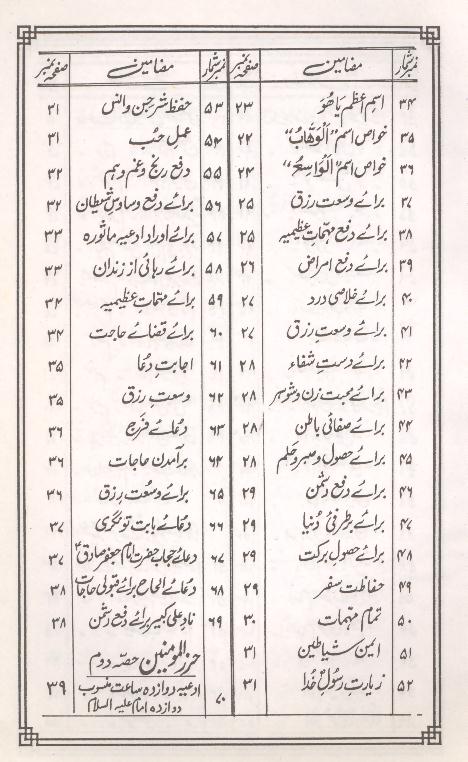 نمبر شمار مضامین صفحہ نمبر
۳۴ اسمِ عظم یَا ھُوَ ۲۳
۳۵ خواص اسم "اَلْوَھَّابُ" ۲۲
۳۶ خواص اسم "اَلْوَاسِعُ" ۲۴
۳۷ برائے وسعت رزق ۲۵
۳۸ برائے دفع مہمّاتِ عظیمیہ ۲۵
۳۹ برائے دفع امراض ۲۶
۴۰ برائے خلاصی درد ۲۷
۴۱ برائے وسعتِ رزق ۲۷
۴۲ برائے دستِ شفاء ۲۸
۴۳ برائے محبت زن و شوہر ۲۸
۴۴ برائے صفائی باطن ۲۸
۴۵ برائے حصول و صبر و حلم ۲۸
۴۶ برائے دفع دشمن ۲۹
۴۷ برائے برطرفئ دُنیا ۲۹
۴۸ برائے حصول برکت ۲۹
۴۹ حفاظت سفر ۲۹
۵۰ تمام مہمات ۳۰
۵۱ ایمن شیاطین ۳۱
۵۲ زیارتِ رسُولِ خُدا ۳۱
نمبر شمار مضامین صفحہ نمبر
۵۳ حفظ شرِ جن و انس ۳۱
۵۴ عملِ حُب ۳۱
۵۵ دفع رنج و غم و ہم ۳۲
۵۶ برائے دفع وساوسِ شیطان ۳۲
۵۷ برائے اوراد ادعیہ ماثورہ ۳۳
۵۸ برائے رہائی از زندان ۳۳
۵۹ برائے مہمّات عظیمیہ ۳۴
۶۰ برائے قضائے حاجت ۳۴
۶۱ اجابتِ دُعا ۳۵
۶۲ وسعتِ رزق ۳۵
۶۳ دُعائے فرج ۳۶
۶۴ برآمدن حاجات ۳۶
۶۵ برائے وسُعتِ رزق ۳۶
۶۶ دُعائے بابت تونگری ۳۷
۶۷ دعائے حجاب حضرت امام جعفر صادقؑ ۳۷
۶۸ دُعائے الحاح برائے قبولی حاجات ۳۸
۶۹ نادِ علی کبیر برائے دفع دشمن ۳۸
حرز المومنین حصّہ دوم
۷۰ ادعیہ دوازدہ ساعت منسوب ۳۹
دوازدہ امام علیہ السلام